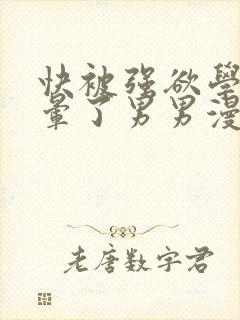 快被强欲學
暈了男男漫
老唐数字君